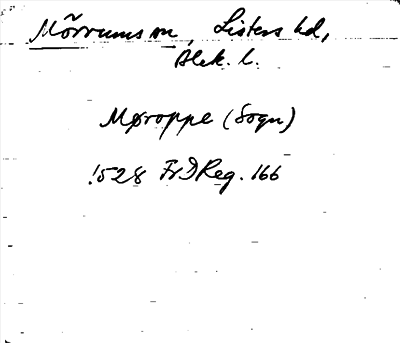 Mörrums sn, Listers hd,
Blek. l.
Møroppe (Sogn)
1528 FrIReg. 166